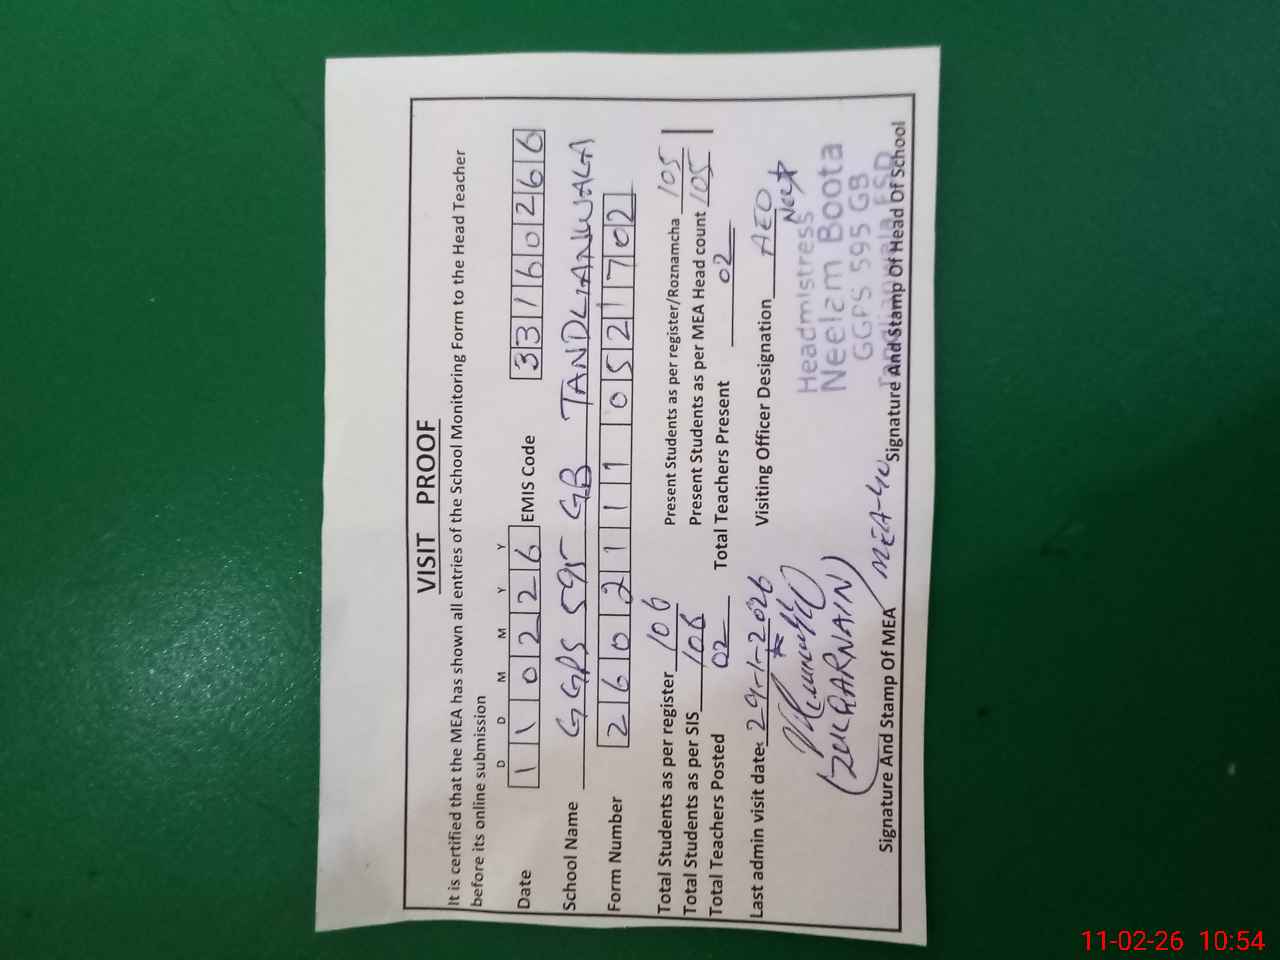 VISIT PROOF
It is certified that the MEA has shown all entries of the School Monitoring Form to the Head Teacher
before its online submission
D D M M Y Y
Date 1 1 0 2 2 6 EMIS Code 3 3 1 6 0 2 6 6
School Name GGPS 595 GB TANDLIANWALA
Form Number 2 6 0 2 1 1 1 0 5 2 1 7 0 2
Total Students as per register 106 Present Students as per register/Roznamcha 105
Total Students as per SIS 106 Present Students as per MEA Head count 105
Total Teachers Posted 02 Total Teachers Present 02
Last admin visit date: 29-1-2026 Visiting Officer Designation AEO
(ZULQARNAIN) MEA-40
Headmistress
Neelam Boota
GGPS 595 GB
Tandlianwala FSD
Signature And Stamp Of MEA Signature And Stamp Of Head Of School
11-02-26 10:54